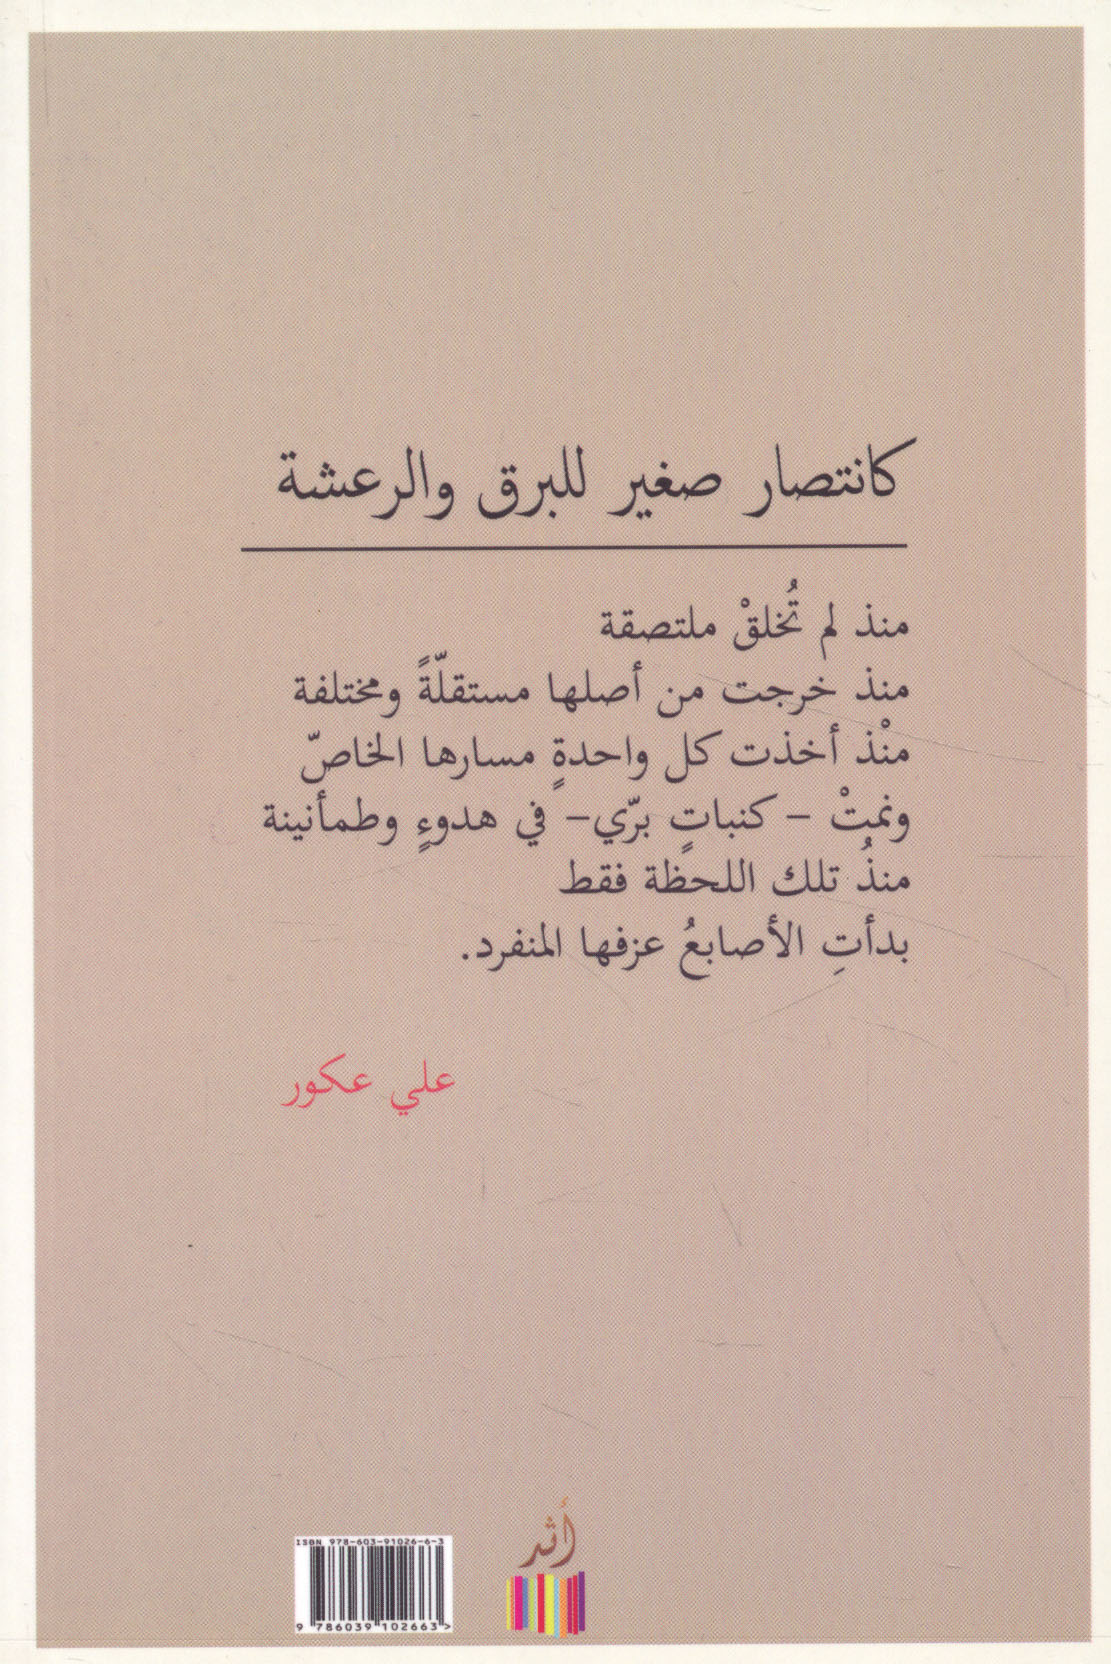 كانتصار صغير للبرق والرعشة
منذ لم تُخلقْ ملتصقة
منذ خرجت من أصلها مستقلّةً ومختلفة
منْذ أخذت كل واحدةٍ مسارها الخاصّ
ونمتْ - كنباتٍ برّي- في هدوءٍ وطمأنينة
منذُ تلك اللحظة فقط
بدأتِ الأصابعُ عزفها المنفرد.
علي عكور
أثر
ISBN 978-603-91026-6-3
9 786039 102663 >